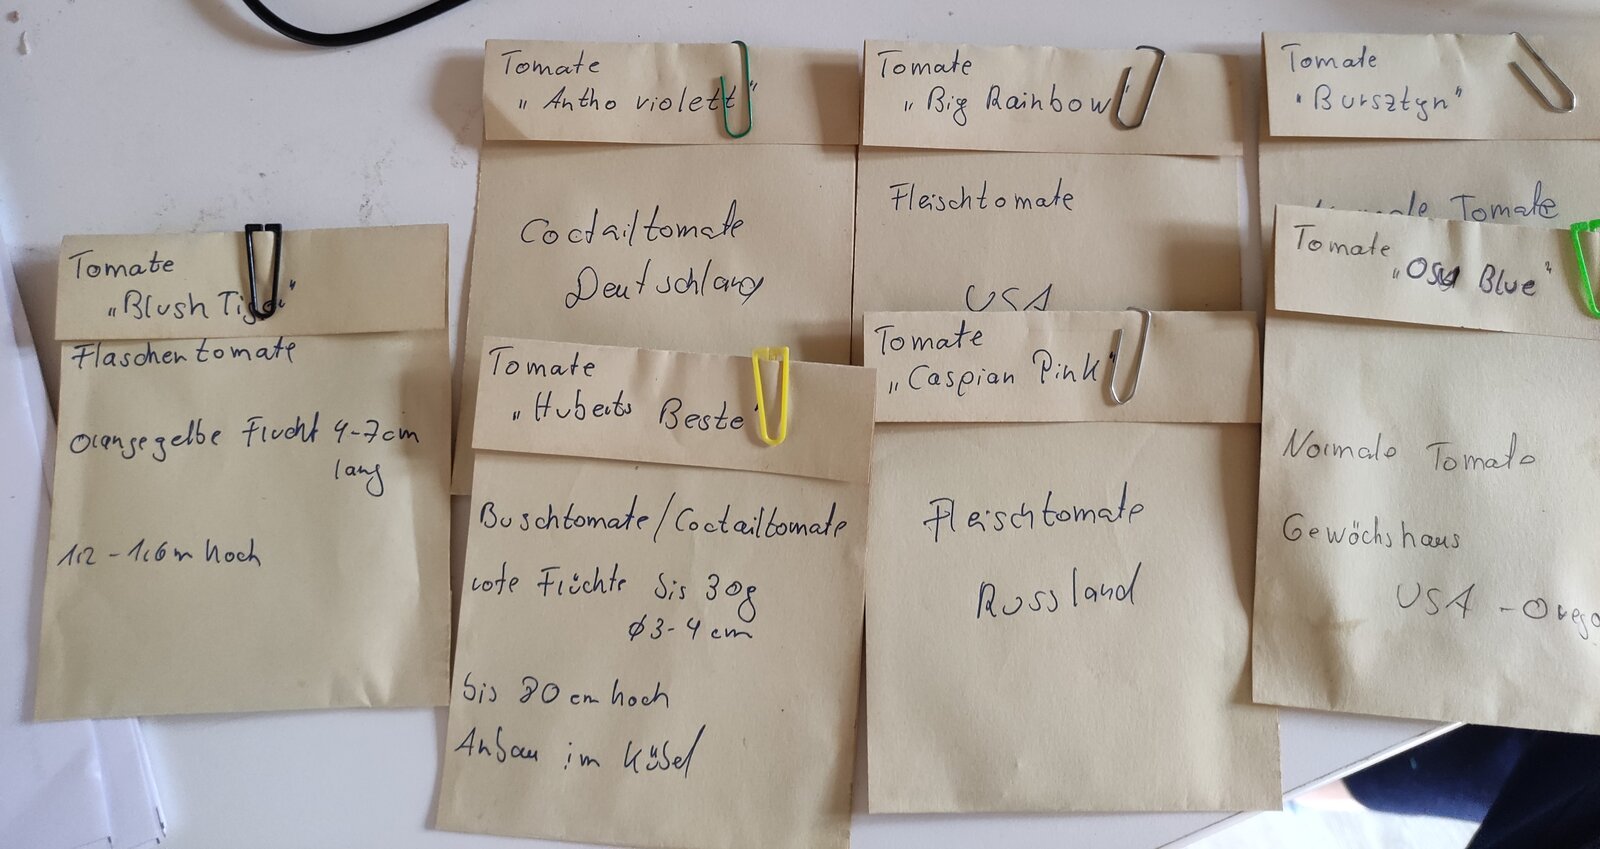 Tomate
"Blush Tiger"
Flaschentomate
Orangegelbe Frucht 4-7cm
lang
1,2 - 1,6m hoch
Tomate
"Antho violett"
Coctailtomate
Deutschland
Tomate
"Huberts Beste"
Buschtomate/Coctailtomate
rote Früchte bis 30g
ø3-4 cm
bis 80 cm hoch
Anbau im Kübel
Tomate
"Big Rainbow"
Fleischtomate
USA
Tomate
"Caspian Pink"
Fleischtomate
Russland
Tomate
"Bursztyn"
Tomate
Tomate
"OSU Blue"
Normale Tomate
Gewächshaus
USA - Orego